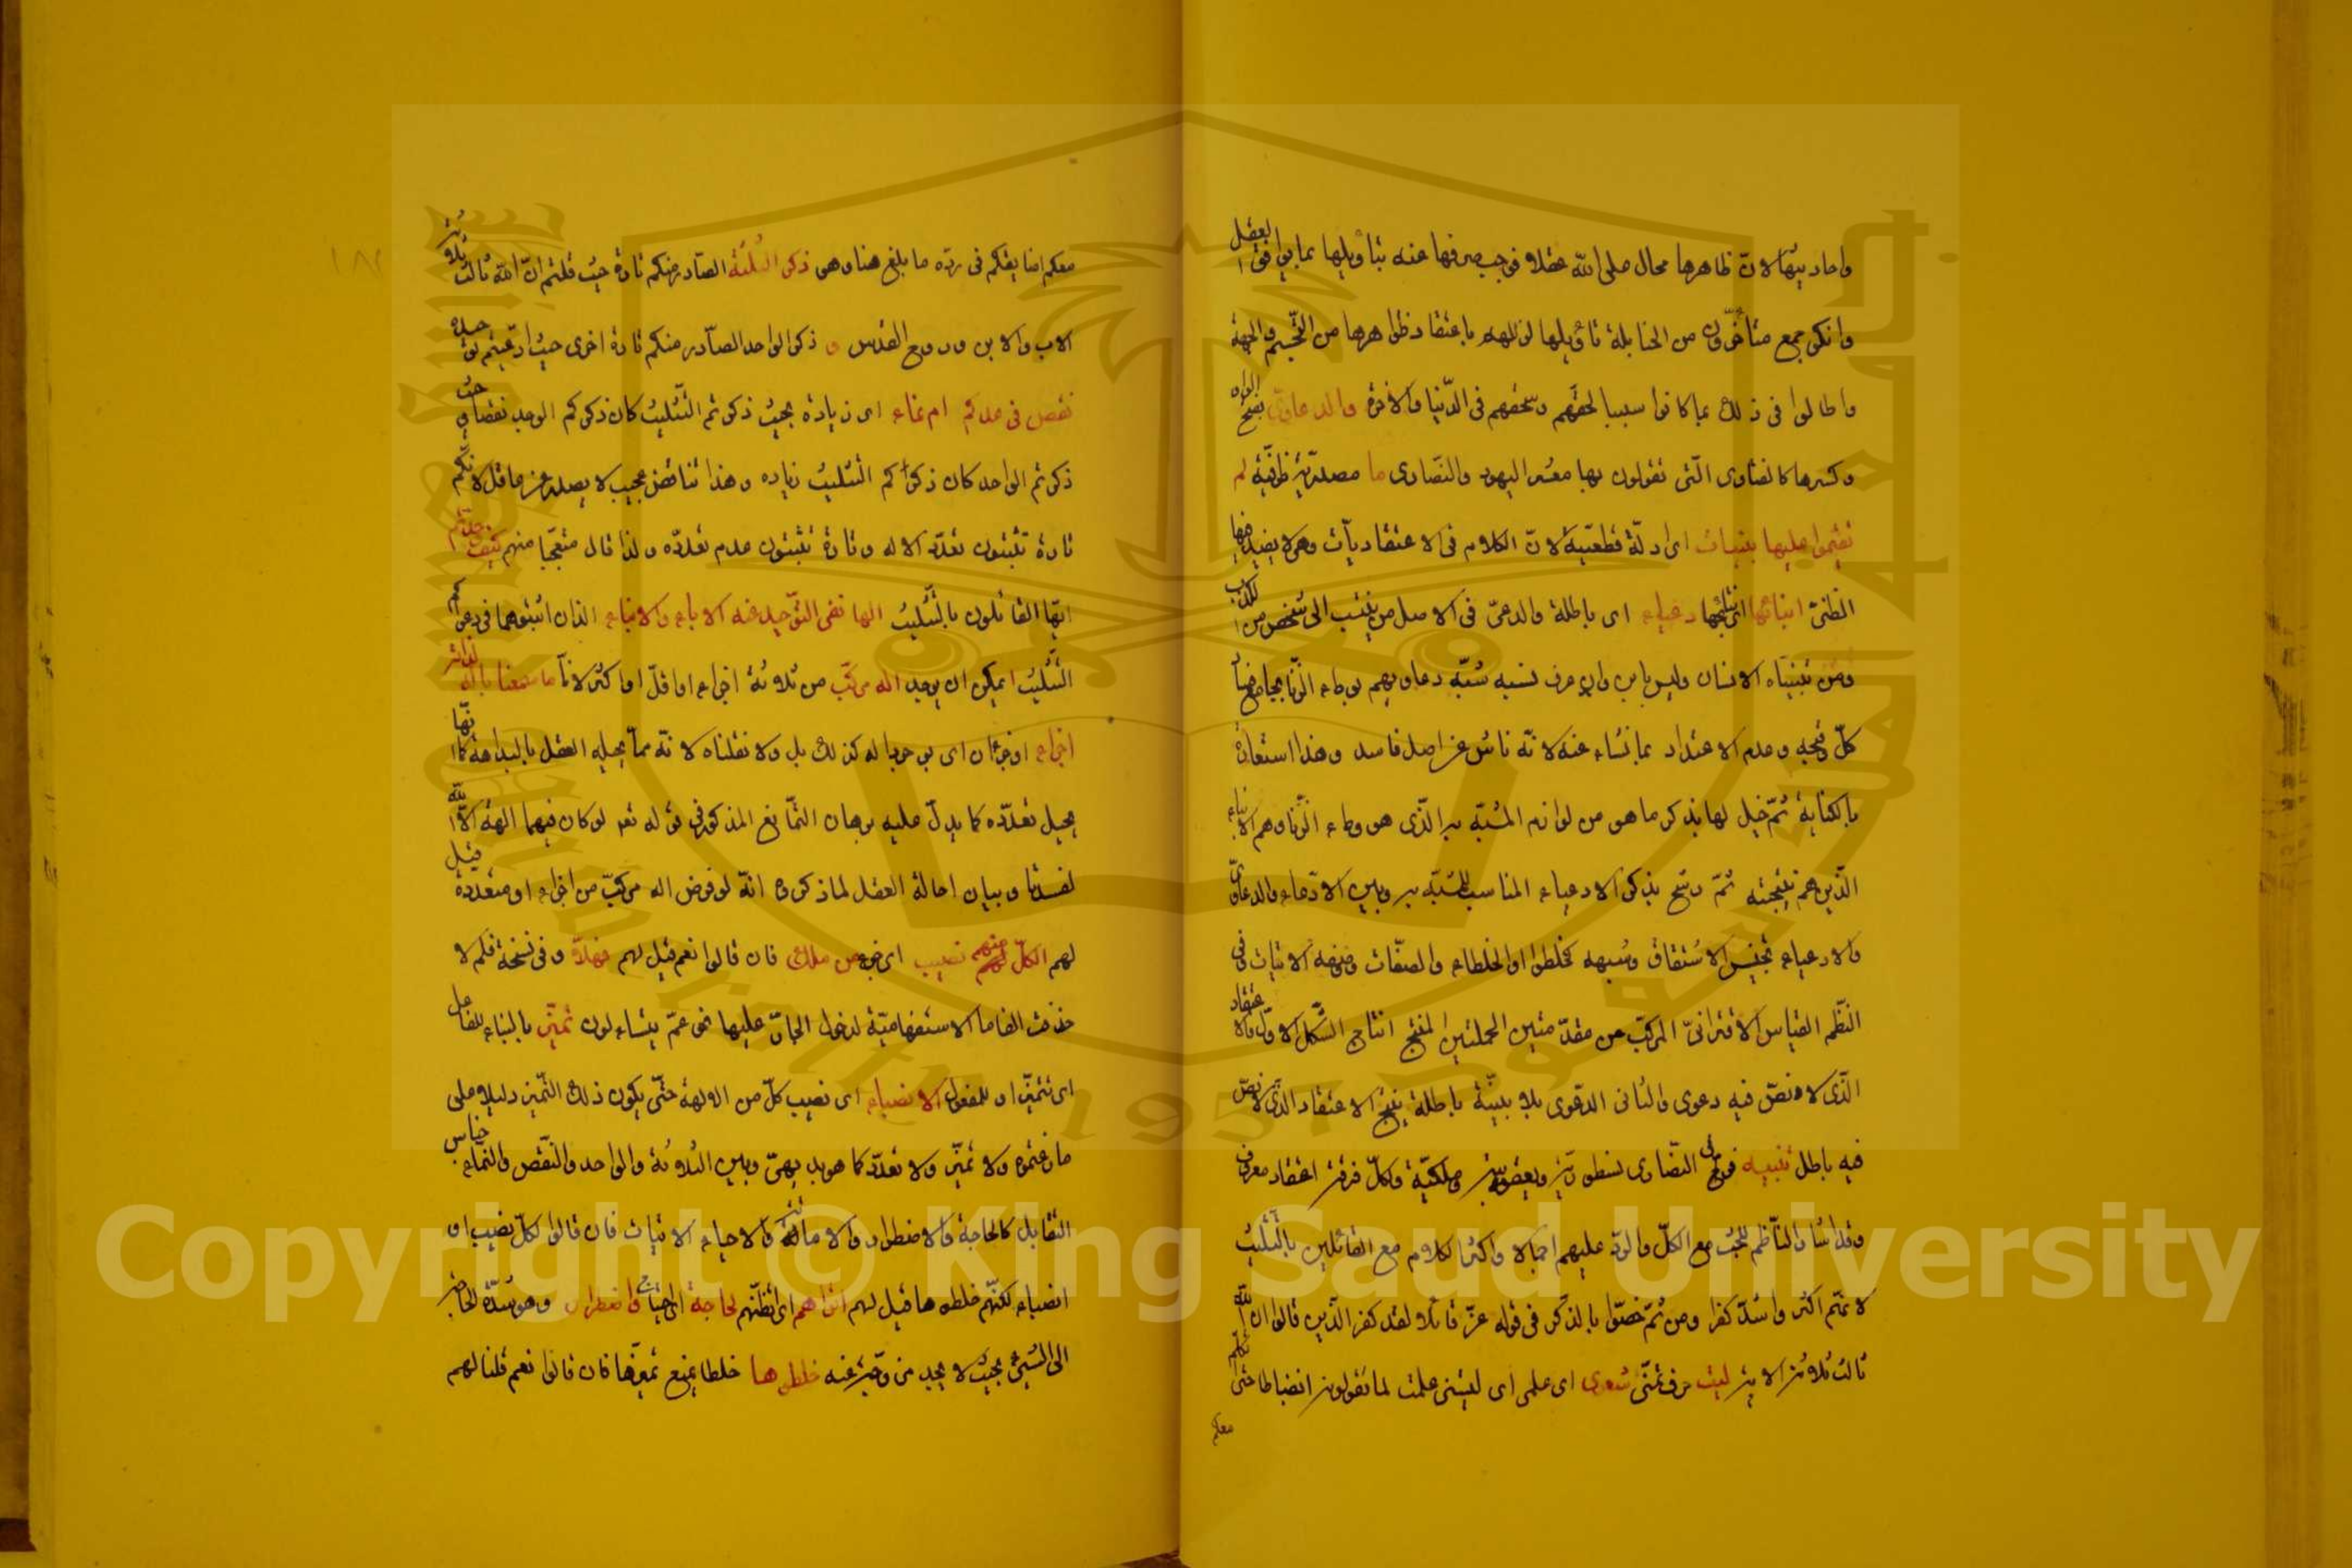 واحاديثها لان ظاهرها محال على الله عقلا فوجب صرفها عنه بتأويلها بما يوافق العقل
وانكر جمع متأخرون من الحنابلة تأويلها لزللهم باعتقاد ظواهرها من التجسيم والجهة
واطالوا في ذلك بما كانوا سببا لمقتهم وسخفهم في الدنيا والاخرة والدعاوى بفتح الواو
وكسرها كالفتاوى التي تقولون بها معشر اليهود والنصارى ما مصدرية ظرفية لم
تقيموا عليها بينات اي ادلة قطعية لان الكلام في الاعتقاديات وهي لا يفيد فيها
الظني ابناؤها اي نتائجها دعياء اي باطلة والدعي في الاصل من ينتسب الى شخص من الكذب
ومن تبنياه الانسان وليس بابن وان عرف نسبه شبه دعاويهم بوطء الزنا بجامع
كل وقبحه وعدم الاعتداد بما نشاء عنه لانه ناش عن اصل فاسد وهذا استعارة
بالكناية ثم خيل لها بذكر ما هو من لوازم المشبه به الذي هو وطء الزنا وهم الابناء
الذين هم نتيجته ثم رشح بذكر الادعياء المناسب للمشبه به وبين الادعاء والدعاوى
والادعياء تجنيس الاشتقاق وشبهه كخلطوا والخلطاء والصفات وصفه الاثبات وفي
النظم القياس الاقتراني المركب من مقدمتين الحمليتين المنتج انتاج الشكل الاول والاعتقاد
الذي لا نص فيه دعوى والثاني الدعوى بلا بينة باطلة ينتج الاعتقاد الذي لا نص
فيه باطل تنبيه فرق النصارى نسطورية ويعقوبية وملكية ولكل فرقة اعتقاد معروف
وقد اشار الناظم للبحث مع الكل والرد عليهم اجمالا واكثر الكلام مع القائلين بالتثليث
لانهم اكثر واشد كفرا ومن ثم خصوا بالذكر في قوله عز قائلا لقد كفر الذين قالوا ان الله
ثالث ثلاثة الاية ليت حرف تمني شعري اي علمي اي ليتني علمت لما تقولونه انضباطا حتى اتكلم
معكم
معكم اضايقكم في رده ما بلغ هنا وهو ذكر الثلثة الصادر منكم تارة حيث قلتم ان الله ثالث ثلاثة
الاب والابن وروح القدس و ذكر الواحد الصادر منكم تارة اخرى حيث ادعيتم توحيده
نقص في عدكم ام نماء اي زيادة بحيث ذكرتم التثليث كان ذكركم الواحد نقصا وحيث
ذكرتم الواحد كان ذكركم التثليث زيادة وهذا تناقض عجيب لا يصدر عن عاقل لانكم
تارة تثبتون تعدد الاله وتارة تثبتون عدم تعدده ولذا قال متعجبا منهم كيف وحدتم
ايها القائلون بالتثليث الها نفى التوحيد عنه الاباء والابناء الذان اثبتوهما في دعواكم
التثليث ايمكن ان يوجد اله مركب من ثلاثة اجزاء او اقل او اكثر لانا ما سمعنا باله لذاته
اجزاء اوجزان اي بوجوب اله كذلك بل ولا نقلناه لانه مما يحيله العقل بالبداهة كما انها
يحيل تعدده كما يدل عليه برهان التمانع المذكور في قوله تعالى لو كان فيهما الهة الا الله
لفسدتا وبيان احالة العقل لما ذكروه انه لو فرض اله مركب من اجزاء او متعددة قيل
لهم الكل منهم نصيب اي جزء من ملك فان قالوا نعم قيل لهم فهلا وفي نسخة فلم لا
حذفت الف ما الاستفهامية لدخول الجار عليها نحو عم يتساءلون تميز بالبناء للفاعل
اي تتميز او للمفعول الانصباء اي نصيب كل من الالهة حتى يكون ذلك التميز دليلا على
ما زعمتموه ولا تميز ولا تعدد كما هو بديهي وبين الثلاثة والواحد والنقص والنماء جناس
التقابل كالحاجة والاضطرار والاماتة والاحياء الاتيات فان قالوا لكل نصيب او
انصباء لكنهم خلطوها قيل لهم اتراهم اي اتظنهم لحاجة اي احتياج واضطرار وهو شدة الحاجة
الى الشيء بحيث لا يجد من وقته عنه خلطوها خلطا يمنع تميزها فان قالوا نعم قلنا لهم
Copyright © King Saud University
1957